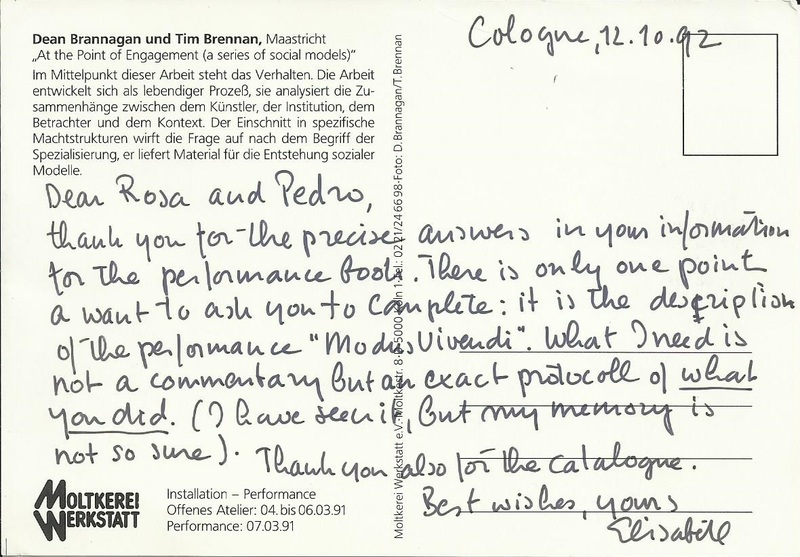 Dean Brannagan und Tim Brennan, Maastricht
„At the Point of Engagement (a series of social models)“
Im Mittelpunkt dieser Arbeit steht das Verhalten. Die Arbeit
entwickelt sich als lebendiger Prozeß, sie analysiert die Zu-
sammenhänge zwischen dem Künstler, der Institution, dem
Betrachter und dem Kontext. Der Einschnitt in spezifische
Machtstrukturen wirft die Frage auf nach dem Begriff der
Spezialisierung, er liefert Material für die Entstehung sozialer
Modelle.
Cologne, 12.10.92
Dear Rosa and Pedro,
thank you for the precise answers in your information
for the performance book. There is only one point
a want to ask you to complete: it is the description
of the performance "Modus Vivendi". What I need is
not a commentary but an exact protocoll of what
you did. (I have seen it, but my memory is
not so sure). Thank you also for the catalogue.
Best wishes, yours
Elisabeth
MOLTKEREI
WERKSTATT
Installation – Performance
Offenes Atelier: 04. bis 06.03.91
Performance: 07.03.91
Moltkerei Werkstatt e.V. · Moltkestr. 8 · D-5000 Köln 1 · Tel.: 02 21/24 66 98 · Foto: D. Brannagan/T. Brennan